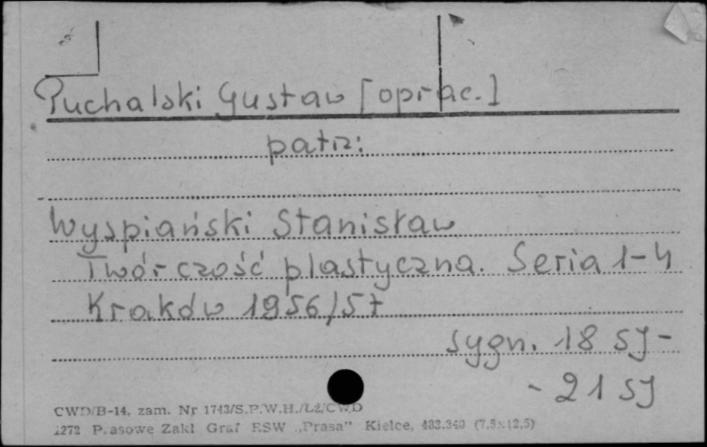 Puchalski Gustaw [oprac.]
patrz:
Wyspiański Stanisław
Twórczość plastyczna. Seria 1-4
Kraków 1956/57
sygn. 18 SJ-
- 21 SJ
CWD/B-14, zam. Nr 1743/S.P.W.H./Łż/CWD
1272 Prasowe Zakł. Graf RSW „Prasa" Kielce, 483.340 (7,5x12,5)